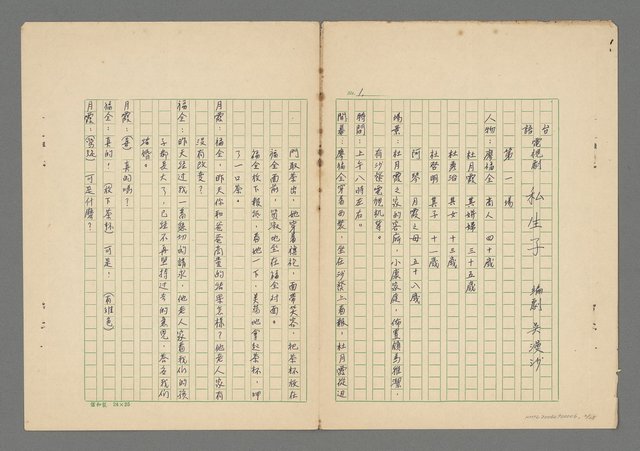 No. 1.
台語電視劇 私生子 編劇 吳漫沙
第一場
人物:廖福全 商人 四十歲
杜月霞 其姘婦 三十五歲
杜彥治 其女 十三歲
杜啓明 其子 十一歲
阿琴 月霞之母 五十八歲
場景:杜月霞之家的客廳,小康家庭,佈置頗為雅潔,
有沙發電視机等。
時間:上午八時左右。
開幕:廖福全穿着西裝,坐在沙發上看報,杜月霞從邊
門取茶出,她穿着旗袍,面帶笑容,把茶杯放在
福全面前,賢淑地坐在福全對面。
福全放下報紙,看她一下,美滿地拿起茶杯,呷
了一口茶。
月霞:福全,昨天你和爸爸商量的結果怎樣?他老人家有
沒有改變?
福全:昨天經过我一番懇切的請求,他老人家看我们的孩
子都長大了,已經不再堅持过去的意見,答應我们
結婚。
月霞:(喜)真的嗎?
福全:真的!(放下茶杯)可是!(有难色)
月霞:(驚疑)可是什麼?
信和裝 24×25